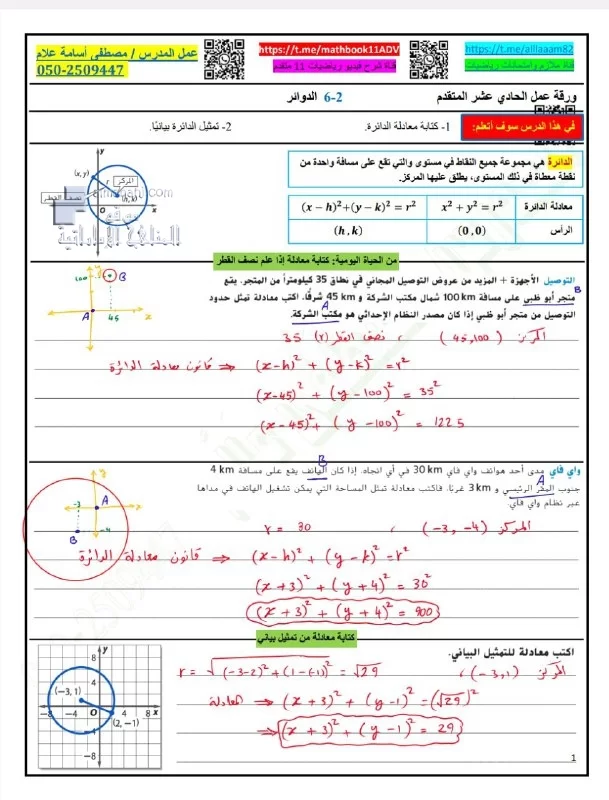 عمل المدرس / مصطفى أسامة علام
050-2509447
https://t.me/mathbook11ADV
قناة شرح فيديو رياضيات 11 متقدم
https://t.me/alllaaam82
قناة ملازم وامتحانات رياضيات
ورقة عمل الحادي عشر المتقدم
6-2 الدوائر
في هذا الدرس سوف أتعلم:
1- كتابة معادلة الدائرة.
2- تمثيل الدائرة بيانيًا.
الدائرة هي مجموعة جميع النقاط في مستوى والتي تقع على مسافة واحدة من
نقطة معطاة في ذلك المستوى، يطلق عليها المركز.
معادلة الدائرة
x² + y² = r²
(x − h)²+(y − k)² = r²
الرأس
(0, 0)
(h, k)
y
(x, y)
r
المركز
(h, k)
نصف القطر
O
x
almanahj.com
موقع
المناهج الإماراتية
من الحياة اليومية: كتابة معادلة إذا علم نصف القطر
التوصيل الأجهزة + المزيد من عروض التوصيل المجاني في نطاق 35 كيلومتراً من المتجر. يقع
متجر أبو ظبي على مسافة 100 km شمال مكتب الشركة و 45 km شرقًا. اكتب معادلة تمثل حدود
التوصيل من متجر أبو ظبي إذا كان مصدر النظام الإحداثي هو مكتب الشركة.
B
A
100
B
A
45
x
المركز (45,100) ، نصف القطر (r) 35
قانون معادلة الدائرة ⇒ (x-h)² + (y-k)² = r²
(x-45)² + (y-100)² = 35²
(x-45)² + (y-100)² = 1225
واي فاي مدى أحد هواتف واي فاي 30 km في أي اتجاه. إذا كان الهاتف يقع على مسافة 4 km
جنوب المقر الرئيسي و 3 km غربًا. فاكتب معادلة تمثل المساحة التي يمكن تشغيل الهاتف في مداها
عبر نظام واي فاي.
B
A
-3
A
-4
B
المركز (-3, -4) ، r = 30
قانون معادلة الدائرة ⇒ (x-h)² + (y-k)² = r²
(x+3)² + (y+4)² = 30²
(x+3)² + (y+4)² = 900
كتابة معادلة من تمثيل بياني
اكتب معادلة للتمثيل البياني.
المركز (-3,1) ، r = √(-3-2)² + (1-(-1))² = √29
المعادلة ⇒ (x+3)² + (y-1)² = (√29)²
⇒ (x+3)² + (y-1)² = 29
y
8
4
(−3, 1)
−8
−4
O
4
8
x
(2, −1)
−4
−8
1